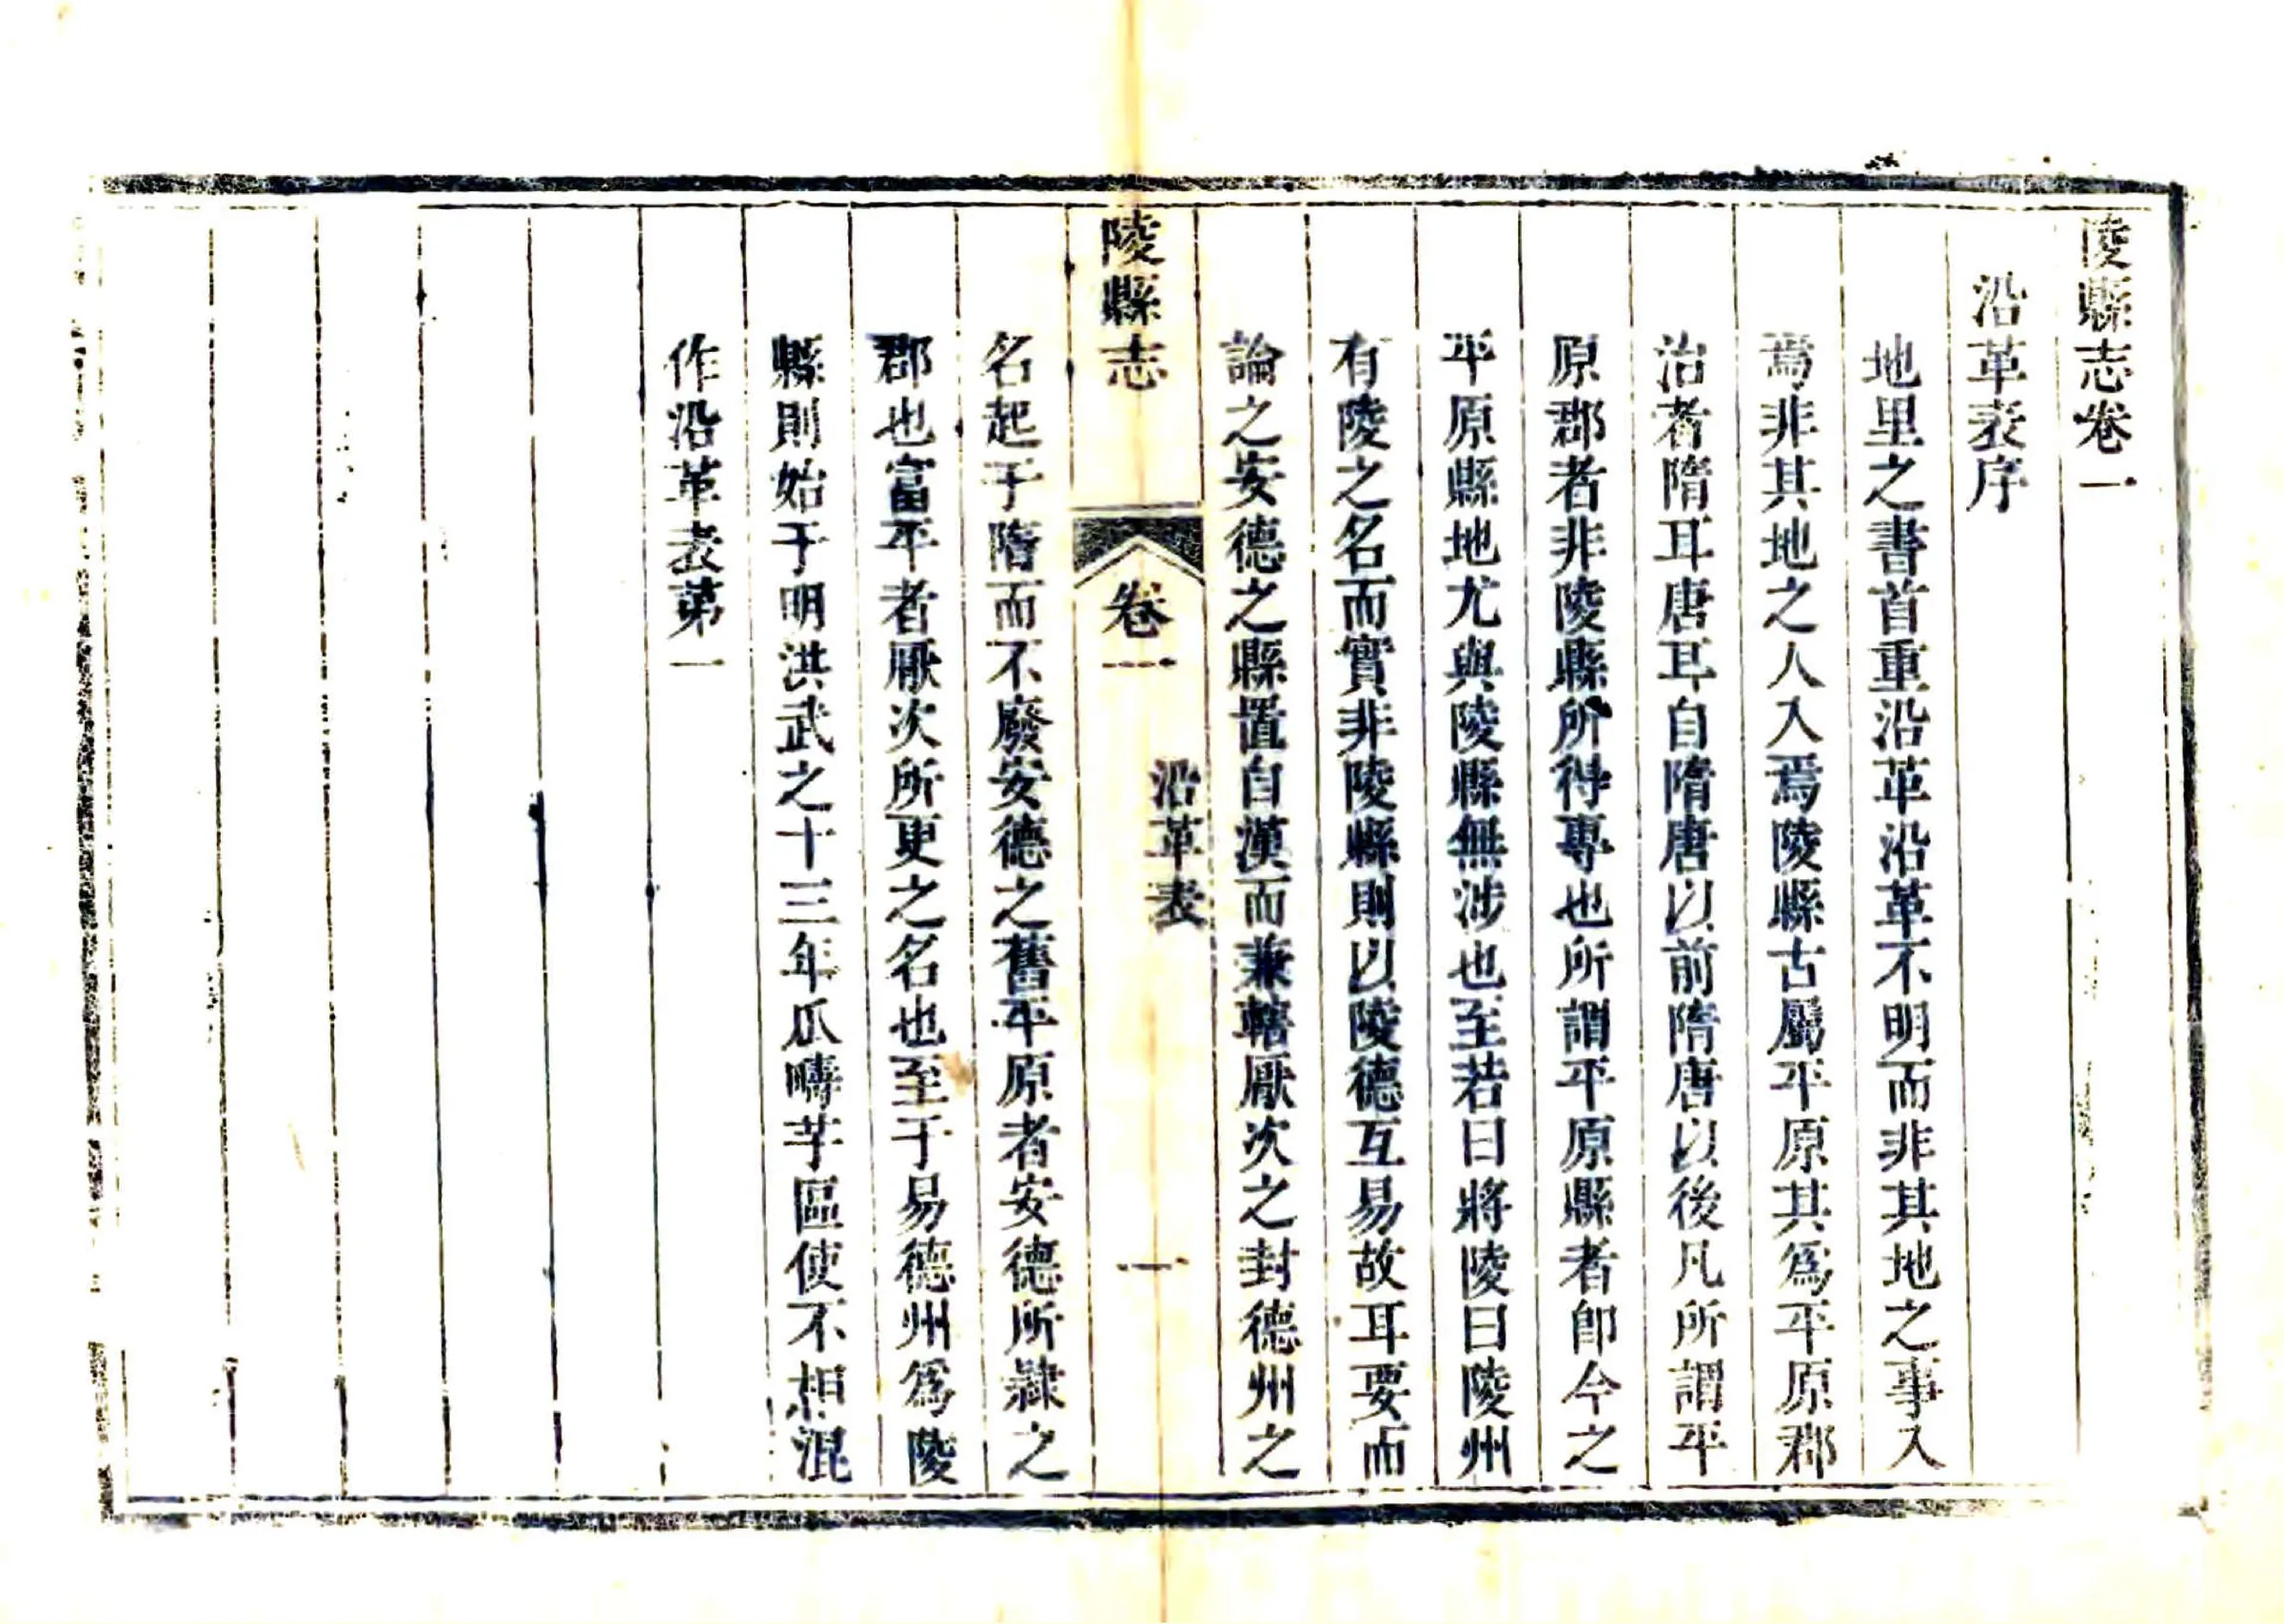 陵縣志卷一
沿革表序
地里之書首重沿革沿革不明而非其地之事入
焉非其地之人入焉陵縣古屬平原其爲平原郡
治者隋耳唐耳自隋唐以前隋唐以後凡所謂平
原郡者非陵縣所得專也所謂平原縣者卽今之
平原縣地尤與陵縣無涉也至若曰將陵曰陵州
有陵之名而實非陵縣則以陵德互易故耳要而
論之安德之縣置自漢而兼轄厭次之封德州之
陵縣志
卷一
沿革表
一
名起于隋而不廢安德之舊平原者安德所隸之
郡也富平者厭次所更之名也至于易德州爲陵
縣則始于明洪武之十三年瓜疇芋區使不相混
作沿革表第一